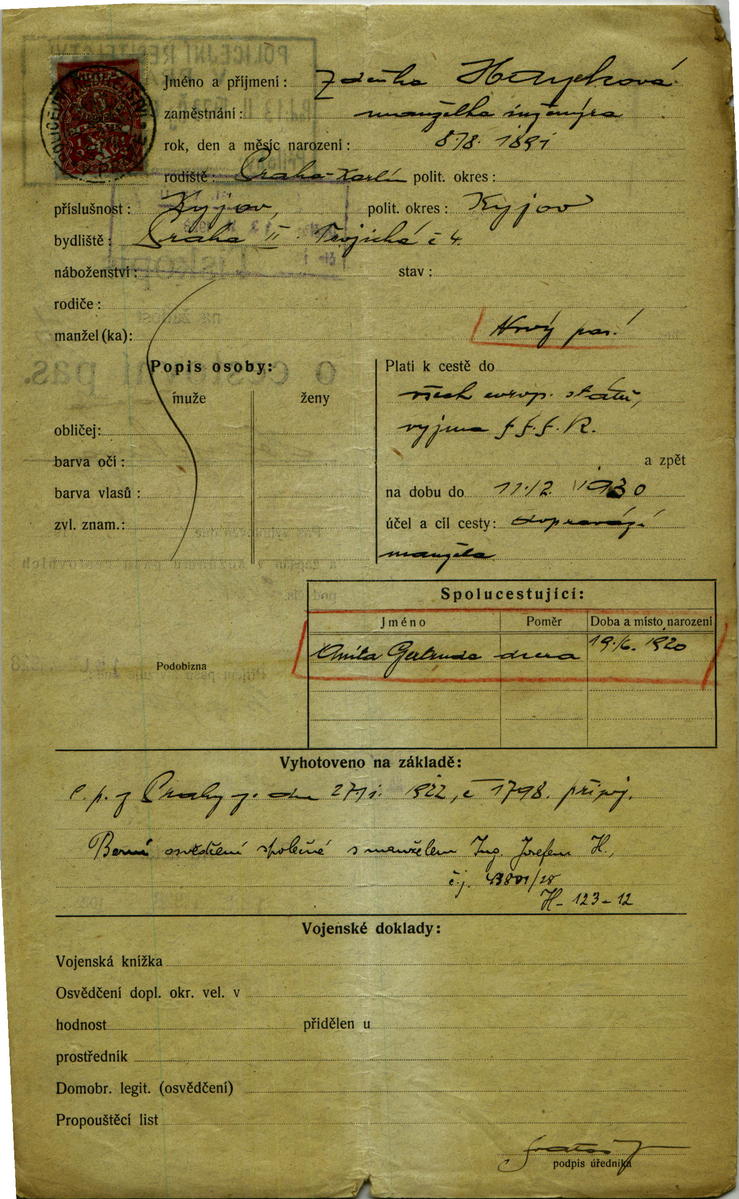 Jméno a příjmení: Zdeňka Hayeková
zaměstnání: manželka inženýra
rok, den a měsíc narození: 8/8. 1891
rodiště: Praha-Karlín polit. okres:
příslušnost: Kyjov polit. okres: Kyjov
bydliště: Praha II. Trojická č 4.
náboženství: stav:
rodiče:
manžel(ka): Nový pas!
Popis osoby:
muže ženy
obličej:
barva očí:
barva vlasů:
zvl. znam.:
Platí k cestě do
všech evrop. států,
vyjma S.S.S.R.
a zpět
na dobu do 11./2. 1930
účel a cíl cesty: doprovází
manžela
Spolucestující:
Jméno Poměr Doba a místo narození
Anita Gertruda dcera 19./6. 1920
Podobizna
Vyhotoveno na základě:
c. p. z Prahy ze dne 27/1. 1922, č 1798. připoj.
Berní osvědčení společné s manželem Ing. Josefem H.,
č.j. /28
H-123-12
Vojenské doklady:
Vojenská knížka
Osvědčení dopl. okr. vel. v
hodnost přidělen u
prostředník
Domobr. legit. (osvědčení)
Propouštěcí list
podpis úředníka